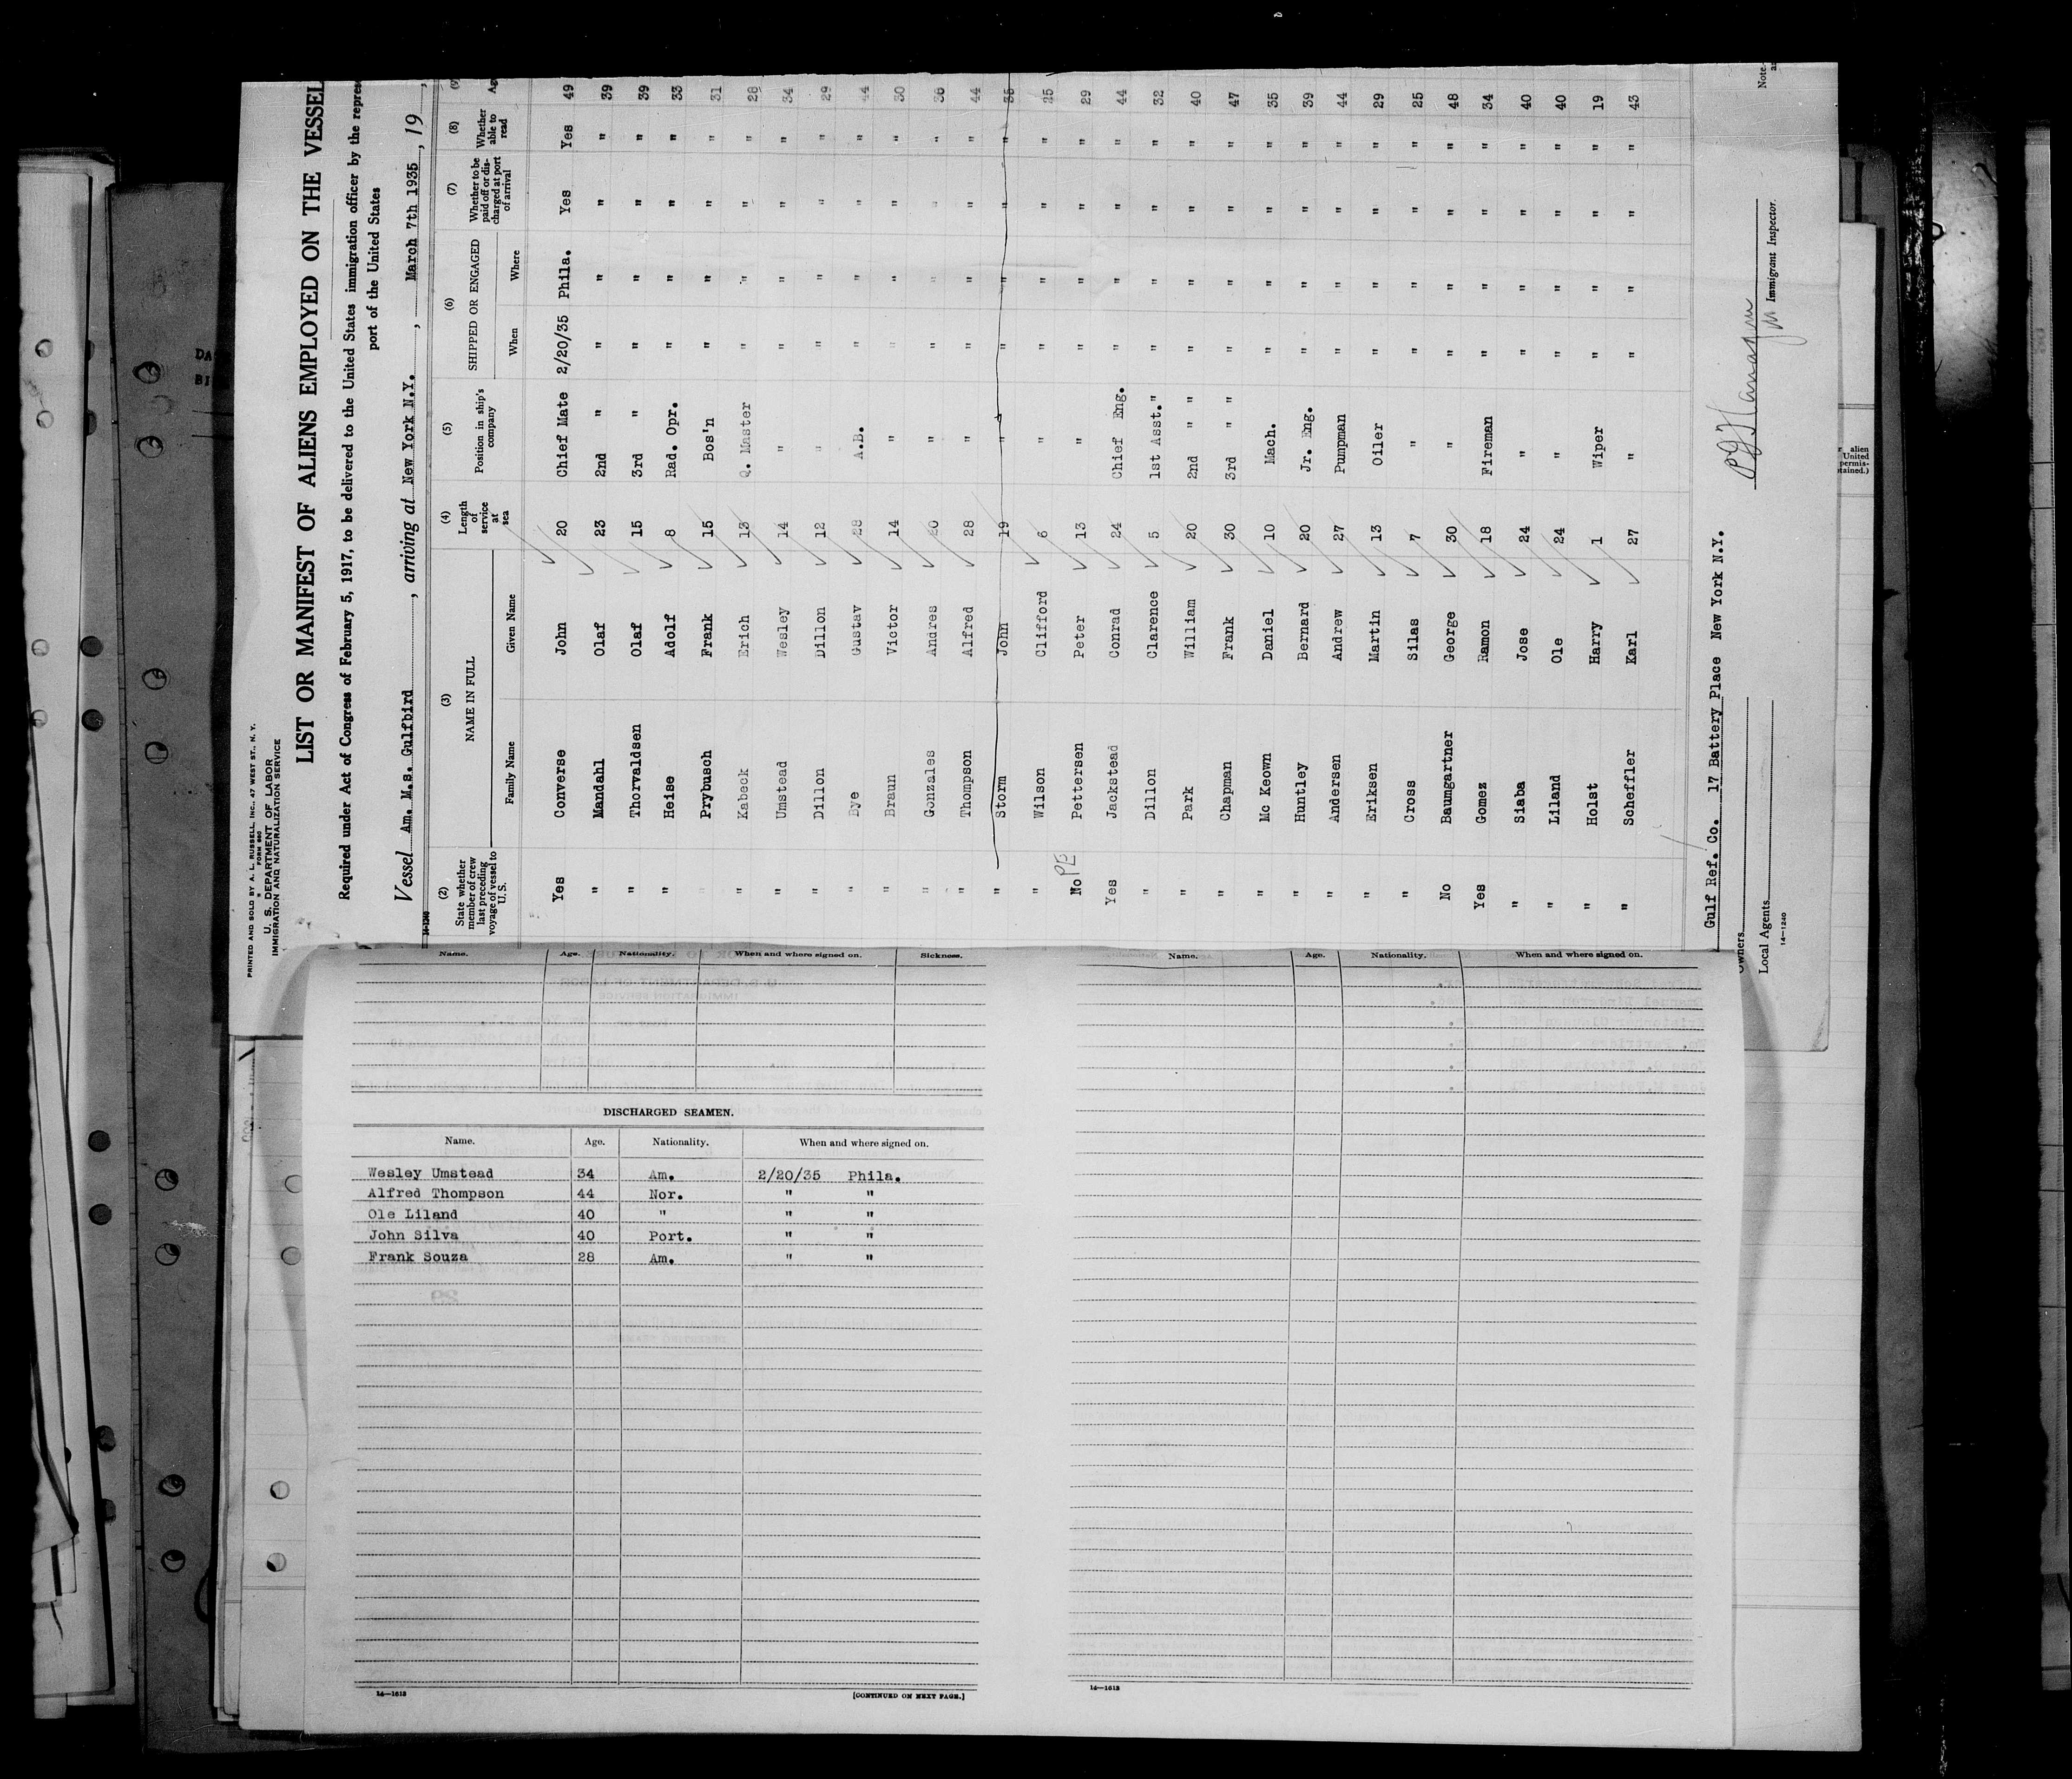 PRINTED AND SOLD BY A. L. RUSSELL, INC., 47 WEST ST., N. Y.
" FORM 680
U. S. DEPARTMENT OF LABOR
IMMIGRATION AND NATURALIZATION SERVICE
LIST OR MANIFEST OF ALIENS EMPLOYED ON THE VESSEL
Required under Act of Congress of February 5, 1917, to be delivered to the United States immigration officer by the repres
port of the United States
Vessel Am. M.s. Gulfbird , arriving at New York N.Y. , March 7th 1935 , 19 ,
14-1240
(2) (3) (4) (5) (6) (7) (8) (9)
State whether member of crew last preceding voyage of vessel to U.S. NAME IN FULL Family Name Given Name Length of service at sea Position in ship's company SHIPPED OR ENGAGED When Where Whether to be paid off or discharged at port of arrival Whether able to read Ag
Yes Converse John 20 Chief Mate 2/20/35 Phila. Yes Yes 49
" Mandahl Olaf 23 2nd " " " " " 39
" Thorvaldsen Olaf 15 3rd " " " " " 39
" Heise Adolf 8 Rad. Opr. " " " " 33
" Prybusch Frank 15 Bos'n " " " " 31
" Kabeck Erich 13 Q. Master " " " " 28
" Umstead Wesley 14 " " " " " 34
" Dillon Dillon 12 " " " " " 29
" Bye Gustav 28 A.B. " " " " 44
" Braun Victor 14 " " " " " 30
" Gonzales Andres 20 " " " " " 36
" Thompson Alfred 28 " " " " " 44
" Storm John 19 " " " " " 35
" Wilson Clifford 6 " " " " " 25
No PE Pettersen Peter 13 " " " " " 29
Yes Jackstead Conrad 24 Chief Eng. " " " " 44
" Dillon Clarence 5 1st Asst." " " " " 32
" Park William 20 2nd " " " " " " 40
" Chapman Frank 30 3rd " " " " " " 47
" Mc Keown Daniel 10 Mach. " " " " 35
" Huntley Bernard 20 Jr. Eng. " " " " 39
" Andersen Andrew 27 Pumpman " " " " 44
" Eriksen Martin 13 Oiler " " " " 29
" Cross Silas 7 " " " " " 25
No Baumgartner George 30 " " " " " 48
Yes Gomez Ramon 18 Fireman " " " " 34
" Siaba Jose 24 " " " " " 40
" Liland Ole 24 " " " " " 40
" Holst Harry 1 Wiper " " " " 19
" Scheffler Karl 27 " " " " " 43
Gulf Ref. Co. 17 Battery Place New York N.Y.
Owners
Local Agents
14-1240
Immigrant Inspector.
Note-
Name. Age. Nationality. When and where signed on. Sickness.
DISCHARGED SEAMEN.
Name. Age. Nationality. When and where signed on.
Wesley Umstead 34 Am. 2/20/35 Phila.
Alfred Thompson 44 Nor. " "
Ole Liland 40 " " "
John Silva 40 Port. " "
Frank Souza 28 Am. " "
14-1613
[CONTINUED ON NEXT PAGE.]
Name. Age. Nationality. When and where signed on.
14-1613
r alien
United
permis-
tained.)
DA
BI